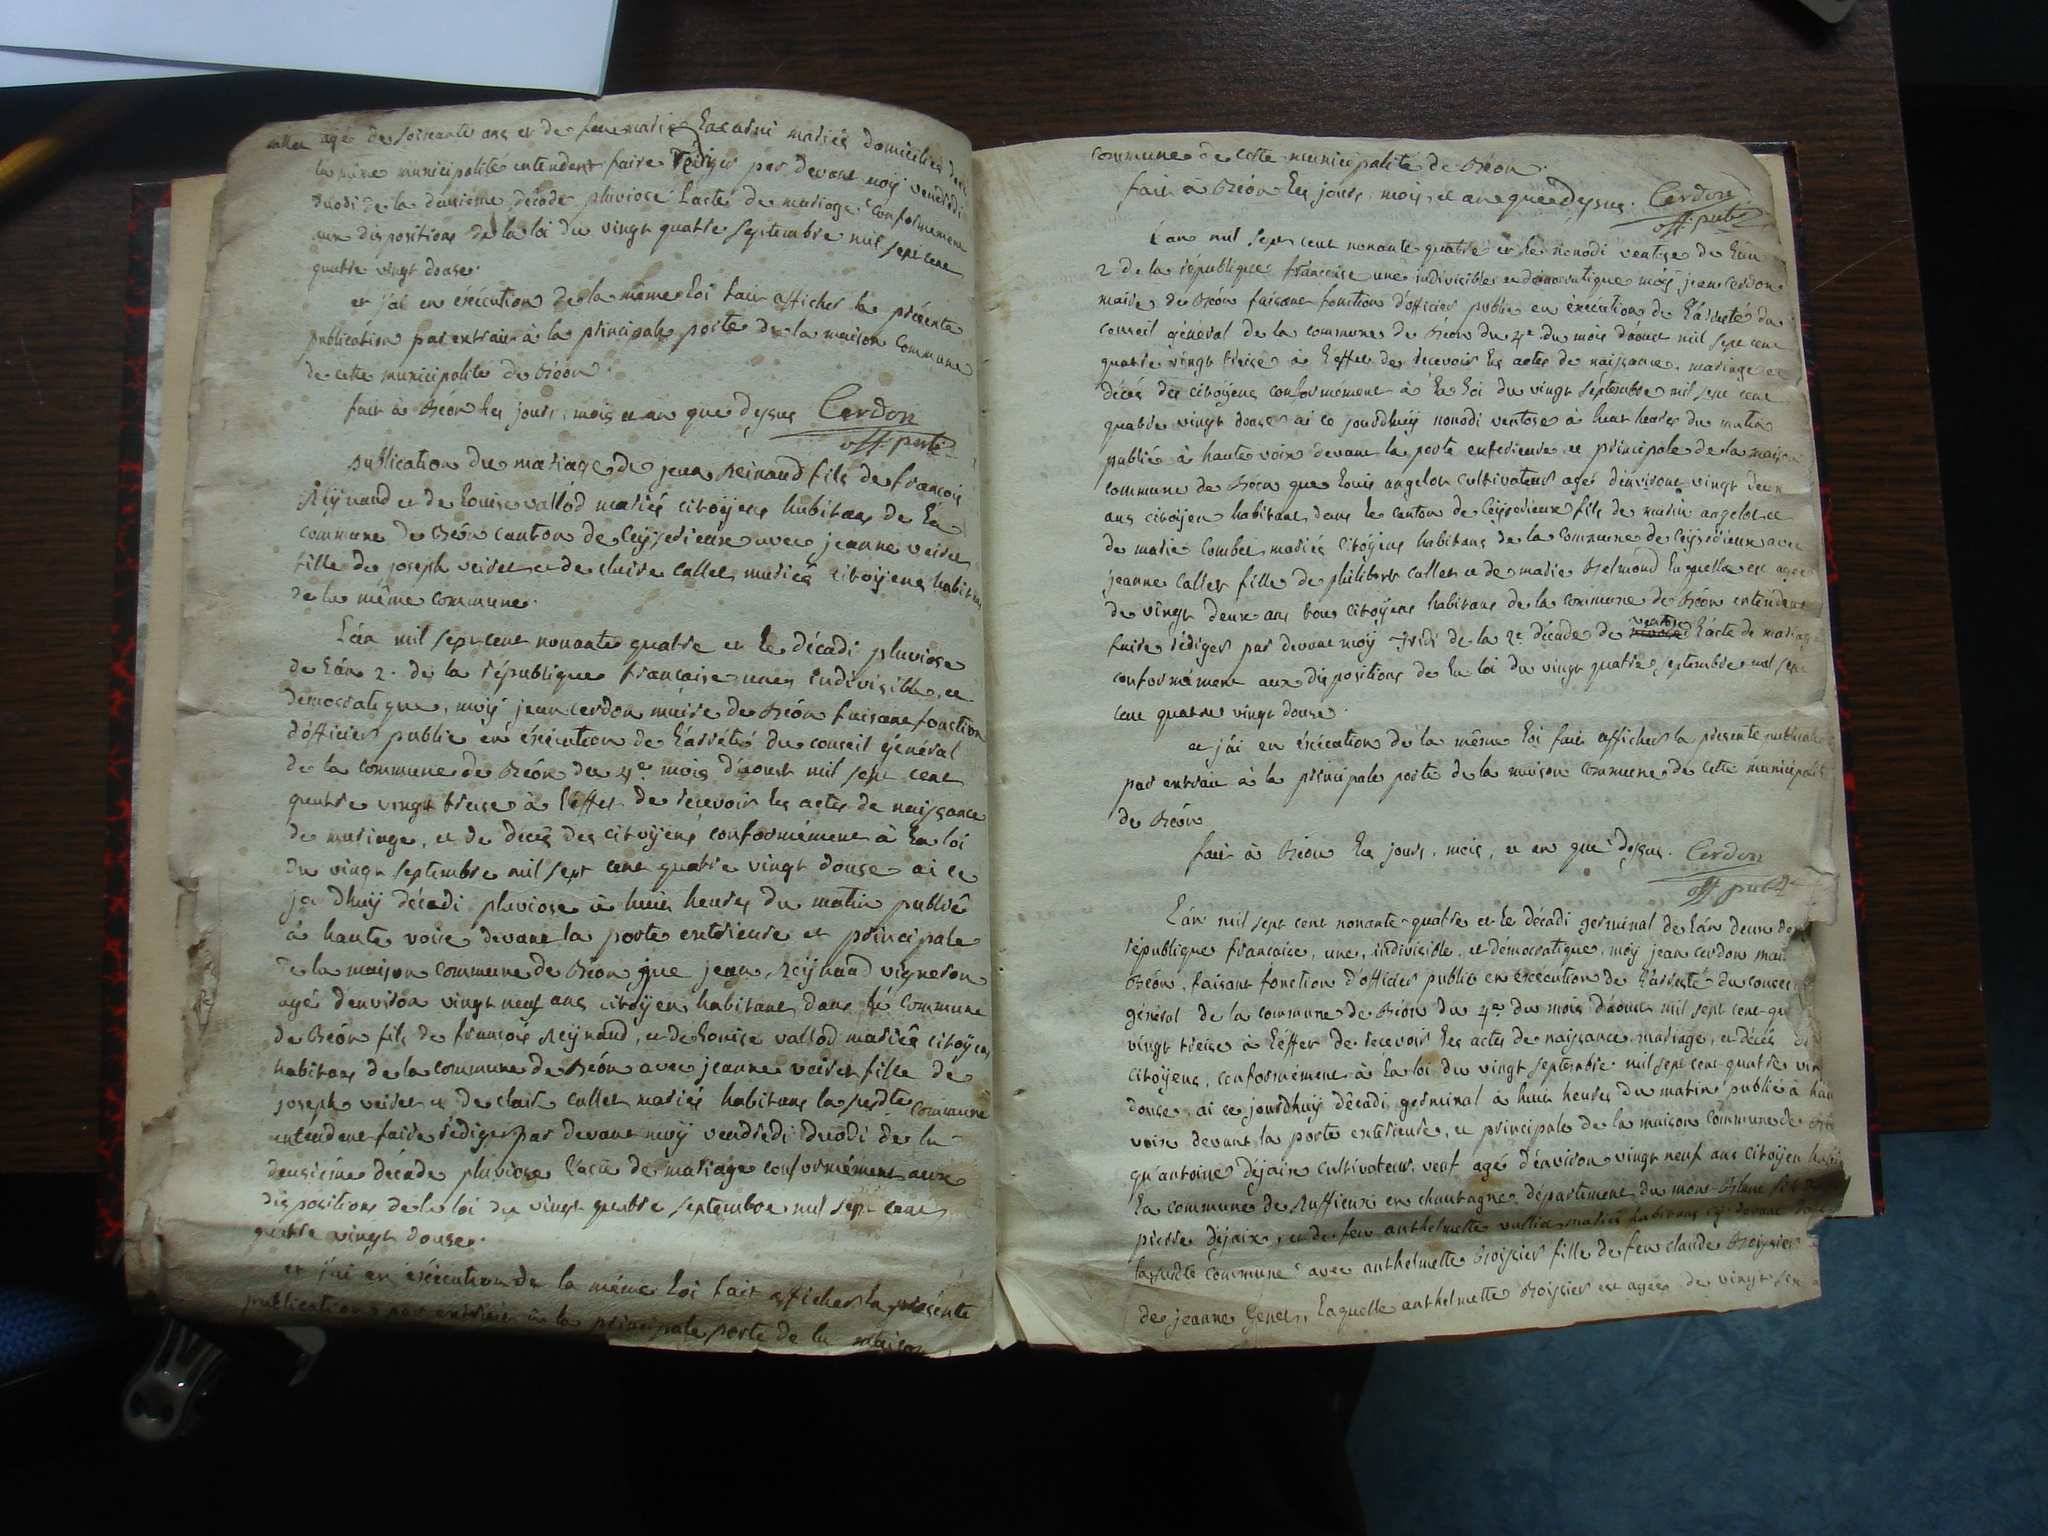 agé de soixante ans et de feu marie mariés domiciliés dans
la même municipalité entendent faire rediger par devant moÿ vendredi
duodi de la deuxieme décade pluviose l'acte de mariage conformement
aux dispositions de la loi du vingt quatre septembre mil sept cent
quatre vingt douse.
et j'ai en éxécution de la même loi fait afficher la présente
publication par extrait à la principale porte de la maison commune
de cette municipalité de Béon.
fait à Béon les jours, mois et an que dessus Cerdon
off. public
publication du mariage de jean Reinaud fils de françois
Reÿnaud et de Louise vallod mariés citoÿens habitans de la
commune de Béon canton de Ceÿserieux avec jeanne veiret
fille de joseph veiret et de claire callet mariés citoÿens habitans
de la même commune.
L'an mil sept cent nonante quatre et le décadi pluviose
de l'an 2. de la république francaise une, indivisible, et
démocratique, moÿ jean cerdon maire de Béon faisant fonction
d'officier public en éxécution de l'arrété du conseil général
de la commune de Béon du 4e mois d'aoust mil sept cent
quatre vingt treise à l'effet de recevoir les actes de naissance
de mariage, et de décès des citoÿens conformément à la loi
du vingt septembre mil sept cent quatre vingt douse ai ce
jo dhuÿ décadi pluviose à huit heures du matin publié
à haute voix devant la porte extérieure et principale
de la maison commune de Béon que jean Reÿnaud vigneron
agé denviron vingt neuf ans citoÿen habitant dans la commune
de Béon fils de françois Reÿnaud, et de Louise vallod mariés citoÿens
habitans de la commune de Béon avec jeanne veiret fille de
joseph veiret et de clair callet mariés habitans la susdte commune
entendent faire rédiger par devant moÿ vendredi duodi de la
deusieme décade pluviose l'acte de mariage conformément aux
dispositions de la loi du vingt quatre septembre mil sept cent
quatre vingt douse.
et j'ai en éxécution de la même loi fait afficher la présente
publication par extrait à la principale porte de la maison
commune de cette municipalité de Béon.
fait à Béon les jours, mois, et an que dessus. Cerdon
off. public
L'an mil sept cent nonante quatre et le nonodi ventose de l'an
2 de la république francaise une indivisible et démocratique moÿ jean cerdon
maire de Béon faisant fonction d'officier public en éxécution de l'arreté du
conseil général de la commune de Béon du 4e du mois d'aoust mil sept cent
quatre vingt treise à l'effet de recevoir les actes de naissance, mariage et
décés des citoÿens conformément à la loi du vingt septembre mil sept cent
quatre vingt douse ai ce jourdhuÿ nonodi ventose à huit heures du matin
publié à haute voix devant la porte extérieure et principale de la maison
commune de Béon que Louis angelot cultivateur agé d'environt vingt deux
ans citoÿen habitant dans le canton de Ceÿserieux fils de marin angelot et
de marie Combet mariés citoÿens habitans de la commune de Ceÿsérieux avec
jeanne callet fille de philibert callet et de marie Belmond laquelle est agée
de vingt deux ans tous citoÿens habitans de la commune de Béon entendent
faire rédiger par devant moÿ tridi de la 2e décade de ventose l'acte de mariage
conformément aux dispositions de la loi du vingt quatre septembre mil sept
cent quatre vingt douse.
et j'ai en éxécution de la même loi fait afficher la présente publication
par extrait à la principale porte de la maison commune de cette municipalité
de Béon
fait à Béon les jours, mois, et an que dessus. Cerdon
off. public
L'an mil sept cent nonante quatre et le décadi germinal de l'an deux de
république francaise, une, indivisible, et démocratique, moÿ jean cerdon mai
Béon, faisant fonction d'officier public en éxécution de l'arrêté du conseil
général de la commune de Béon du 4e du mois d'aoust mil sept cent qu
vingt treise à l'effet de recevoir les actes de naissance, mariage, et décés
citoÿens, conformément à la loi du vingt septembre mil sept cent quatre vin
douse, ai ce jourdhuÿ décadi germinal à huit heures du matin publié à hau
voix devant la porte extérieure, et principale de la maison commune de
qu'antoine Déjaix cultivateur veuf agé d'environ vingt neuf ans citoÿen
la commune de Ruffieux en chautagne département du mont-Blanc fils
pierre Déjaix, et de feu anthelmette mariés habitans
la susdte commune avec anthelmette Boissier fille de feu claude Boissier
de jeanne Genet, laquelle anthelmette Boissier est agée de vingt